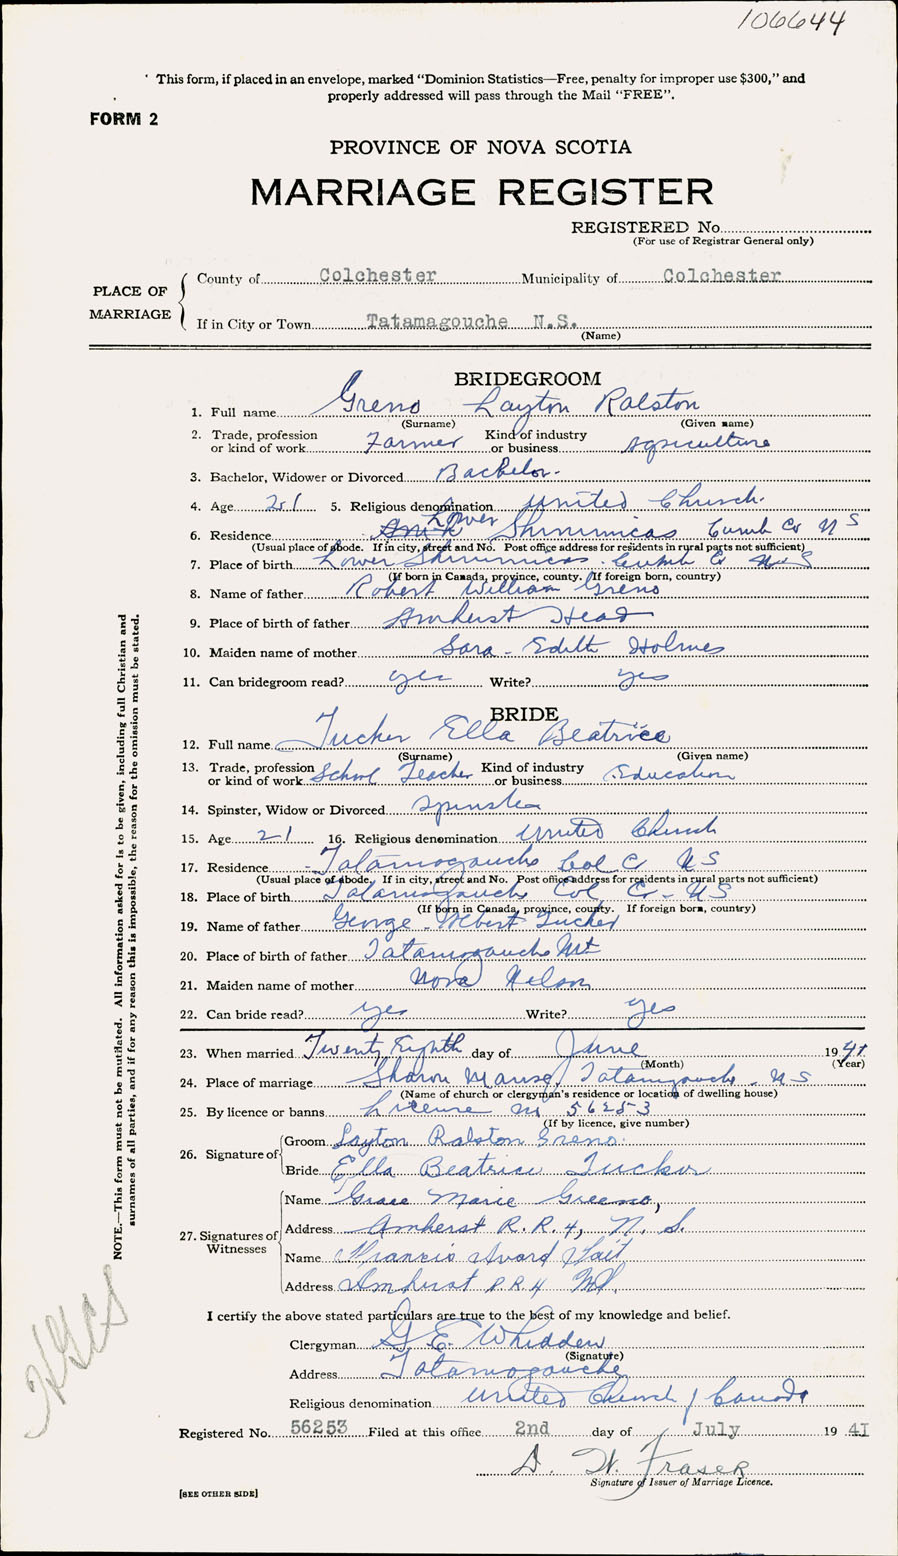 106644
This form, if placed in an envelope, marked "Dominion Statistics—Free, penalty for improper use $300," and
properly addressed will pass through the Mail "FREE".
FORM 2
PROVINCE OF NOVA SCOTIA
MARRIAGE REGISTER
REGISTERED No.
(For use of Registrar General only)
PLACE OF MARRIAGE
County of Colchester Municipality of Colchester
If in City or Town Tatamagouche N.S.
(Name)
BRIDEGROOM
1. Full name Greno Layton Ralston
(Surname) (Given name)
2. Trade, profession or kind of work Farmer Kind of industry or business Agriculture
3. Bachelor, Widower or Divorced Bachelor.
4. Age 21 5. Religious denomination United Church.
6. Residence Lower Shinimicas Cumb Co N S
(Usual place of abode. If in city, street and No. Post office address for residents in rural parts not sufficient)
7. Place of birth Lower Shinimicas. Cumb Co N S
(If born in Canada, province, county. If foreign born, country)
8. Name of father Robert William Greno
9. Place of birth of father Amherst Head
10. Maiden name of mother Sara - Edith Holmes
11. Can bridegroom read? yes Write? yes
BRIDE
12. Full name Tucker Ella Beatrice
(Surname) (Given name)
13. Trade, profession or kind of work School Teacher Kind of industry or business Education
14. Spinster, Widow or Divorced Spinster
15. Age 21 16. Religious denomination United Church
17. Residence Tatamagouche Col C N S
(Usual place of abode. If in city, street and No. Post office address for residents in rural parts not sufficient)
18. Place of birth Tatamagouche Col Co - N S
(If born in Canada, province, county. If foreign born, country)
19. Name of father George Tucker
20. Place of birth of father Tatamagouche Mt
21. Maiden name of mother Nora Nelson
22. Can bride read? yes Write? yes
23. When married Twenty Eighth day of June 1941
(Month) (Year)
24. Place of marriage Sharon Manse, Tatamagouche - N S
(Name of church or clergyman's residence or location of dwelling house)
25. By licence or banns License No 56253
(If by licence, give number)
26. Signature of
Groom Layton Ralston Greno.
Bride Ella Beatrice Tucker
27. Signatures of Witnesses
Name Grace Marie Greeno,
Address Amherst R.R.4, N. S.
Name Francis Avard Tait
Address Amherst R.R.4 N.S.
I certify the above stated particulars are true to the best of my knowledge and belief.
Clergyman G E Whidden
(Signature)
Address Tatamagouche
Religious denomination United Church of Canada
Registered No. 56253 Filed at this office 2nd day of July 1941
D. W. Fraser
Signature of Issuer of Marriage Licence.
[SEE OTHER SIDE]
NOTE.—This form must not be mutilated. All information asked for is to be given, including full Christian and
surnames of all parties, and if for any reason this is impossible, the reason for the omission must be stated.